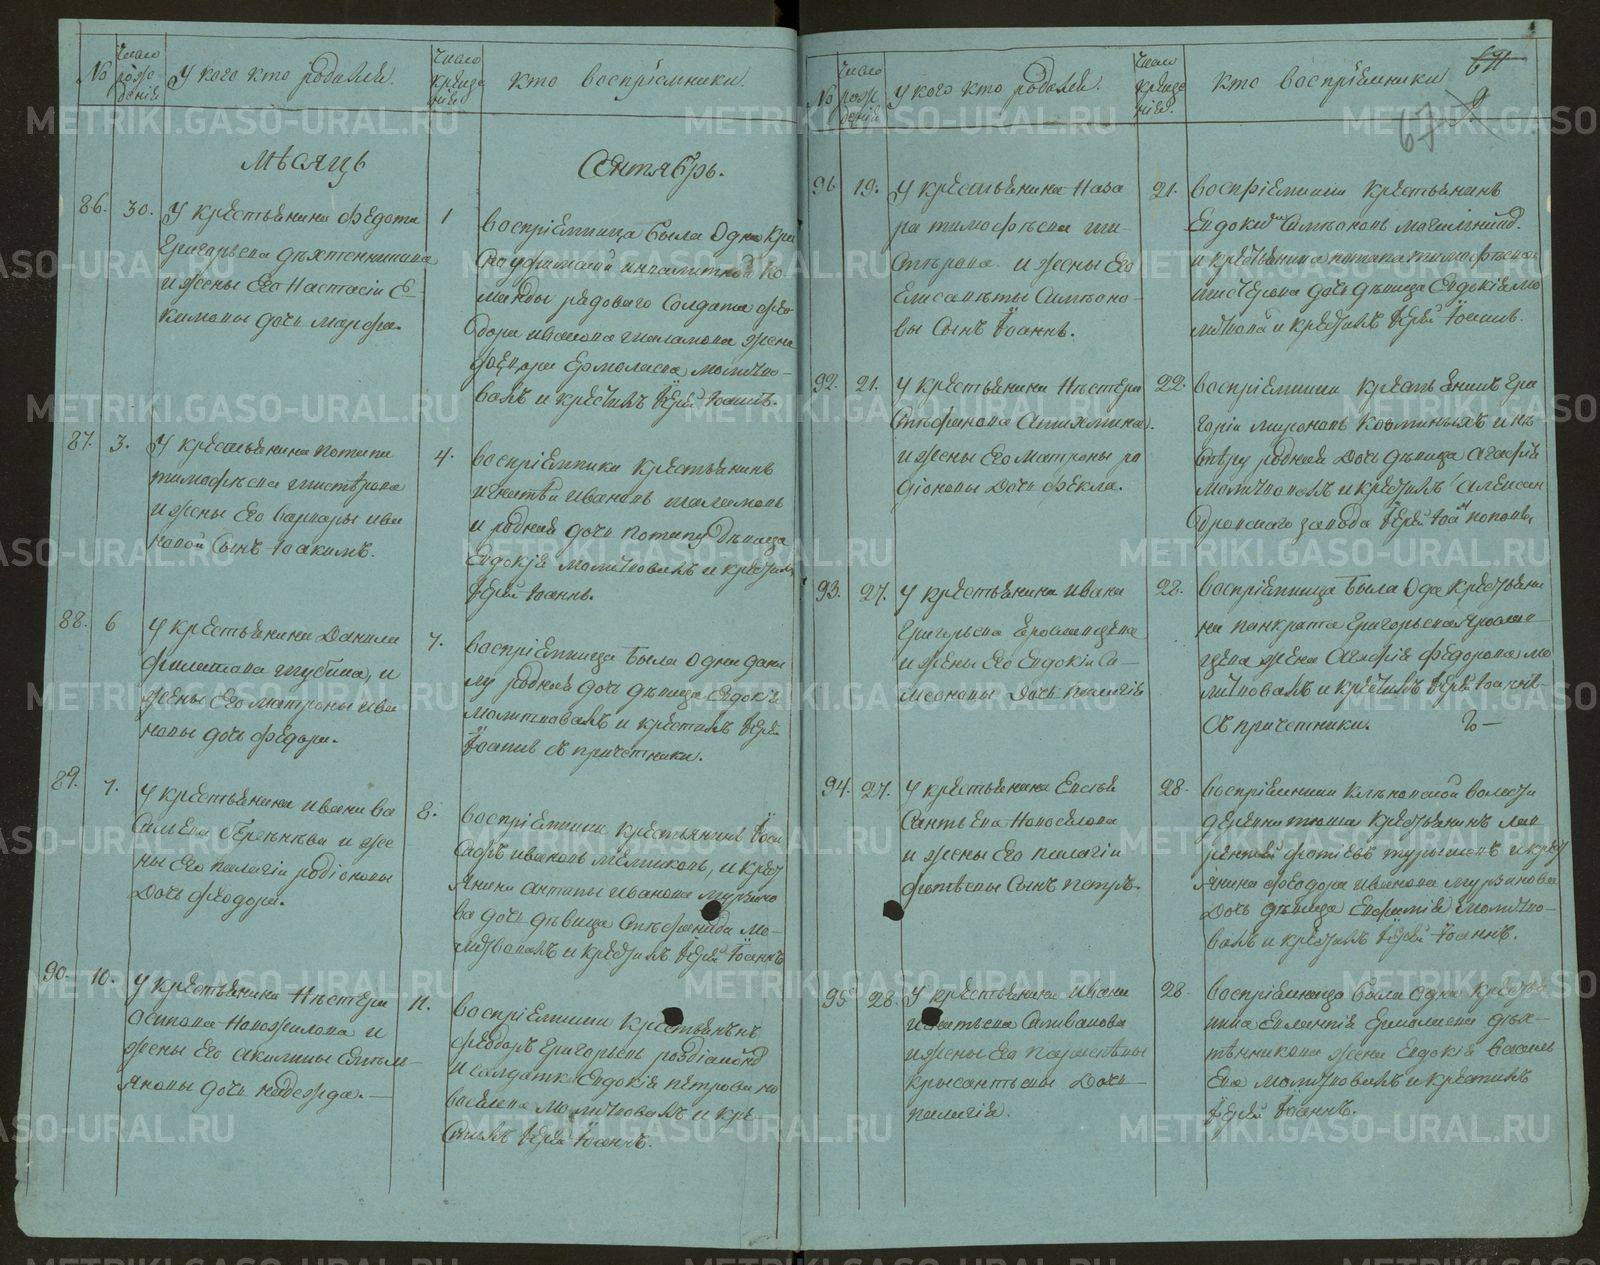 No
Число рожденія
У кого кто родился.
Число крещенія
кто воспріемники.
Мѣсяцъ
Сентябрь.
86. 30.
У крестьянина Федота
Григорьева Дѣхтенникова
и жены Его Настасіи Е-
кимовы дочь Марфа.
1
воспріемница была Одна Кра
сноуфимской инвалитной ко-
манды рядоваго Солдата Фео-
дора Иванова Шаламова жена
Ермолаева молитво-
валъ и крестилъ Іерей Іоаннъ.
87. 3.
У крестьянина Потапа
тимофѣева шистѣрова
и жены Его варвары ива
новой Сынъ Іоакимъ.
4.
воспріемники крестьянинъ
игнатѣй Ивановъ шаламовъ
и родная дочь Потапу дѣвица
Евдокія молитвовалъ и крестилъ
Іерей Іоаннъ.
88. 6
У крестьянина Данила
филатова шубина, и
жены Его матроны ива
новы дочь Федора.
7.
воспріемница была Одна дани
лу родная дочь дѣвица Евдокія
молитвовалъ и крестилъ Іерей
Іоаннъ съ причетники.
89. 7.
У крестьянина ивана ва
сильева и же
ны Его палагіи родіоновы
Дочь Феодора.
8.
воспріемники крестьянинъ Іоси
Ивановъ и крест
янина антипы Иванова мурзино
ва дочь дѣвица Стефанида мо-
литвовалъ и крестилъ Іерей Іоаннъ
90. 10.
У крестьянина Нѣстера
осипова Новожилова и
жены Его акилины Емель-
яновы дочь надежда.
11.
воспріемники крестьянинъ
Феодоръ Григорьевъ
и салдатка Евдокія петрова но
воселова молитвовалъ и кре-
стилъ Іерей Іоаннъ.
No
Число рожденія
У кого кто родился.
Число крещенія.
кто воспріемники
67
91. 19.
У крестьянина Наза
ра тимофѣева ши-
стѣрова и жены Его
Елисаветы Симеоно-
вы Сынъ Іоаннъ.
21.
воспріемники крестьянинъ
Евдокимъ Симеоновъ могильник.
и крестьянина потапа тимофѣева
шистерова дочь дѣвица Евдокія мо
литвовалъ и крестилъ Іерей Іоаннъ.
92. 21.
У крестьянина Нѣстера
Стефанова Апихтина
и жены Его Матроны ро
діоновы Дочь Фекла.
22.
воспріемники крестьянинъ Гри
горій мироновъ Козминыхъ и Нѣ
стеру родная Дочь дѣвица Агафія
молитвовалъ и крестилъ Алексан
дровскаго завода Іерей Іоаннъ поповъ.
93. 27.
У крестьянина ивана
Григорьева Ерославцева
и жены Его Евдокіи Си-
меоновы Дочь палагія
28.
воспріемница была Одна Крестьяни
на панкрата Григорьева Ярослав-
цева жена Агафія Федорова мо
литвовалъ и крестилъ Іерей Іоаннъ
съ причетники.
94. 27.
У крестьянина Евсѣя
Савтѣева Новоселова
и жены Его палагіи
фотѣевы Сынъ петръ.
28.
воспріемники Клѣновской волости
деревни тюша крестьянинъ лав
рентій фотіевъ турышевъ и крест
янина феодора иванова мурзинова
Дочь дѣвица Евфимія молитво-
валъ и крестилъ Іерей Іоаннъ.
95 28.
У крестьянина ивана
игнатьева Силиванова
и жены Его параскѣвы
крысантьевы Дочь
палагія.
28.
воспріемница была Одна крестья
нина Ермолаева дѣх-
тѣнникова жена Евдокія василь
ева молитвовалъ и крестилъ
Іерей Іоаннъ.
METRIKI.GASO-URAL.RU